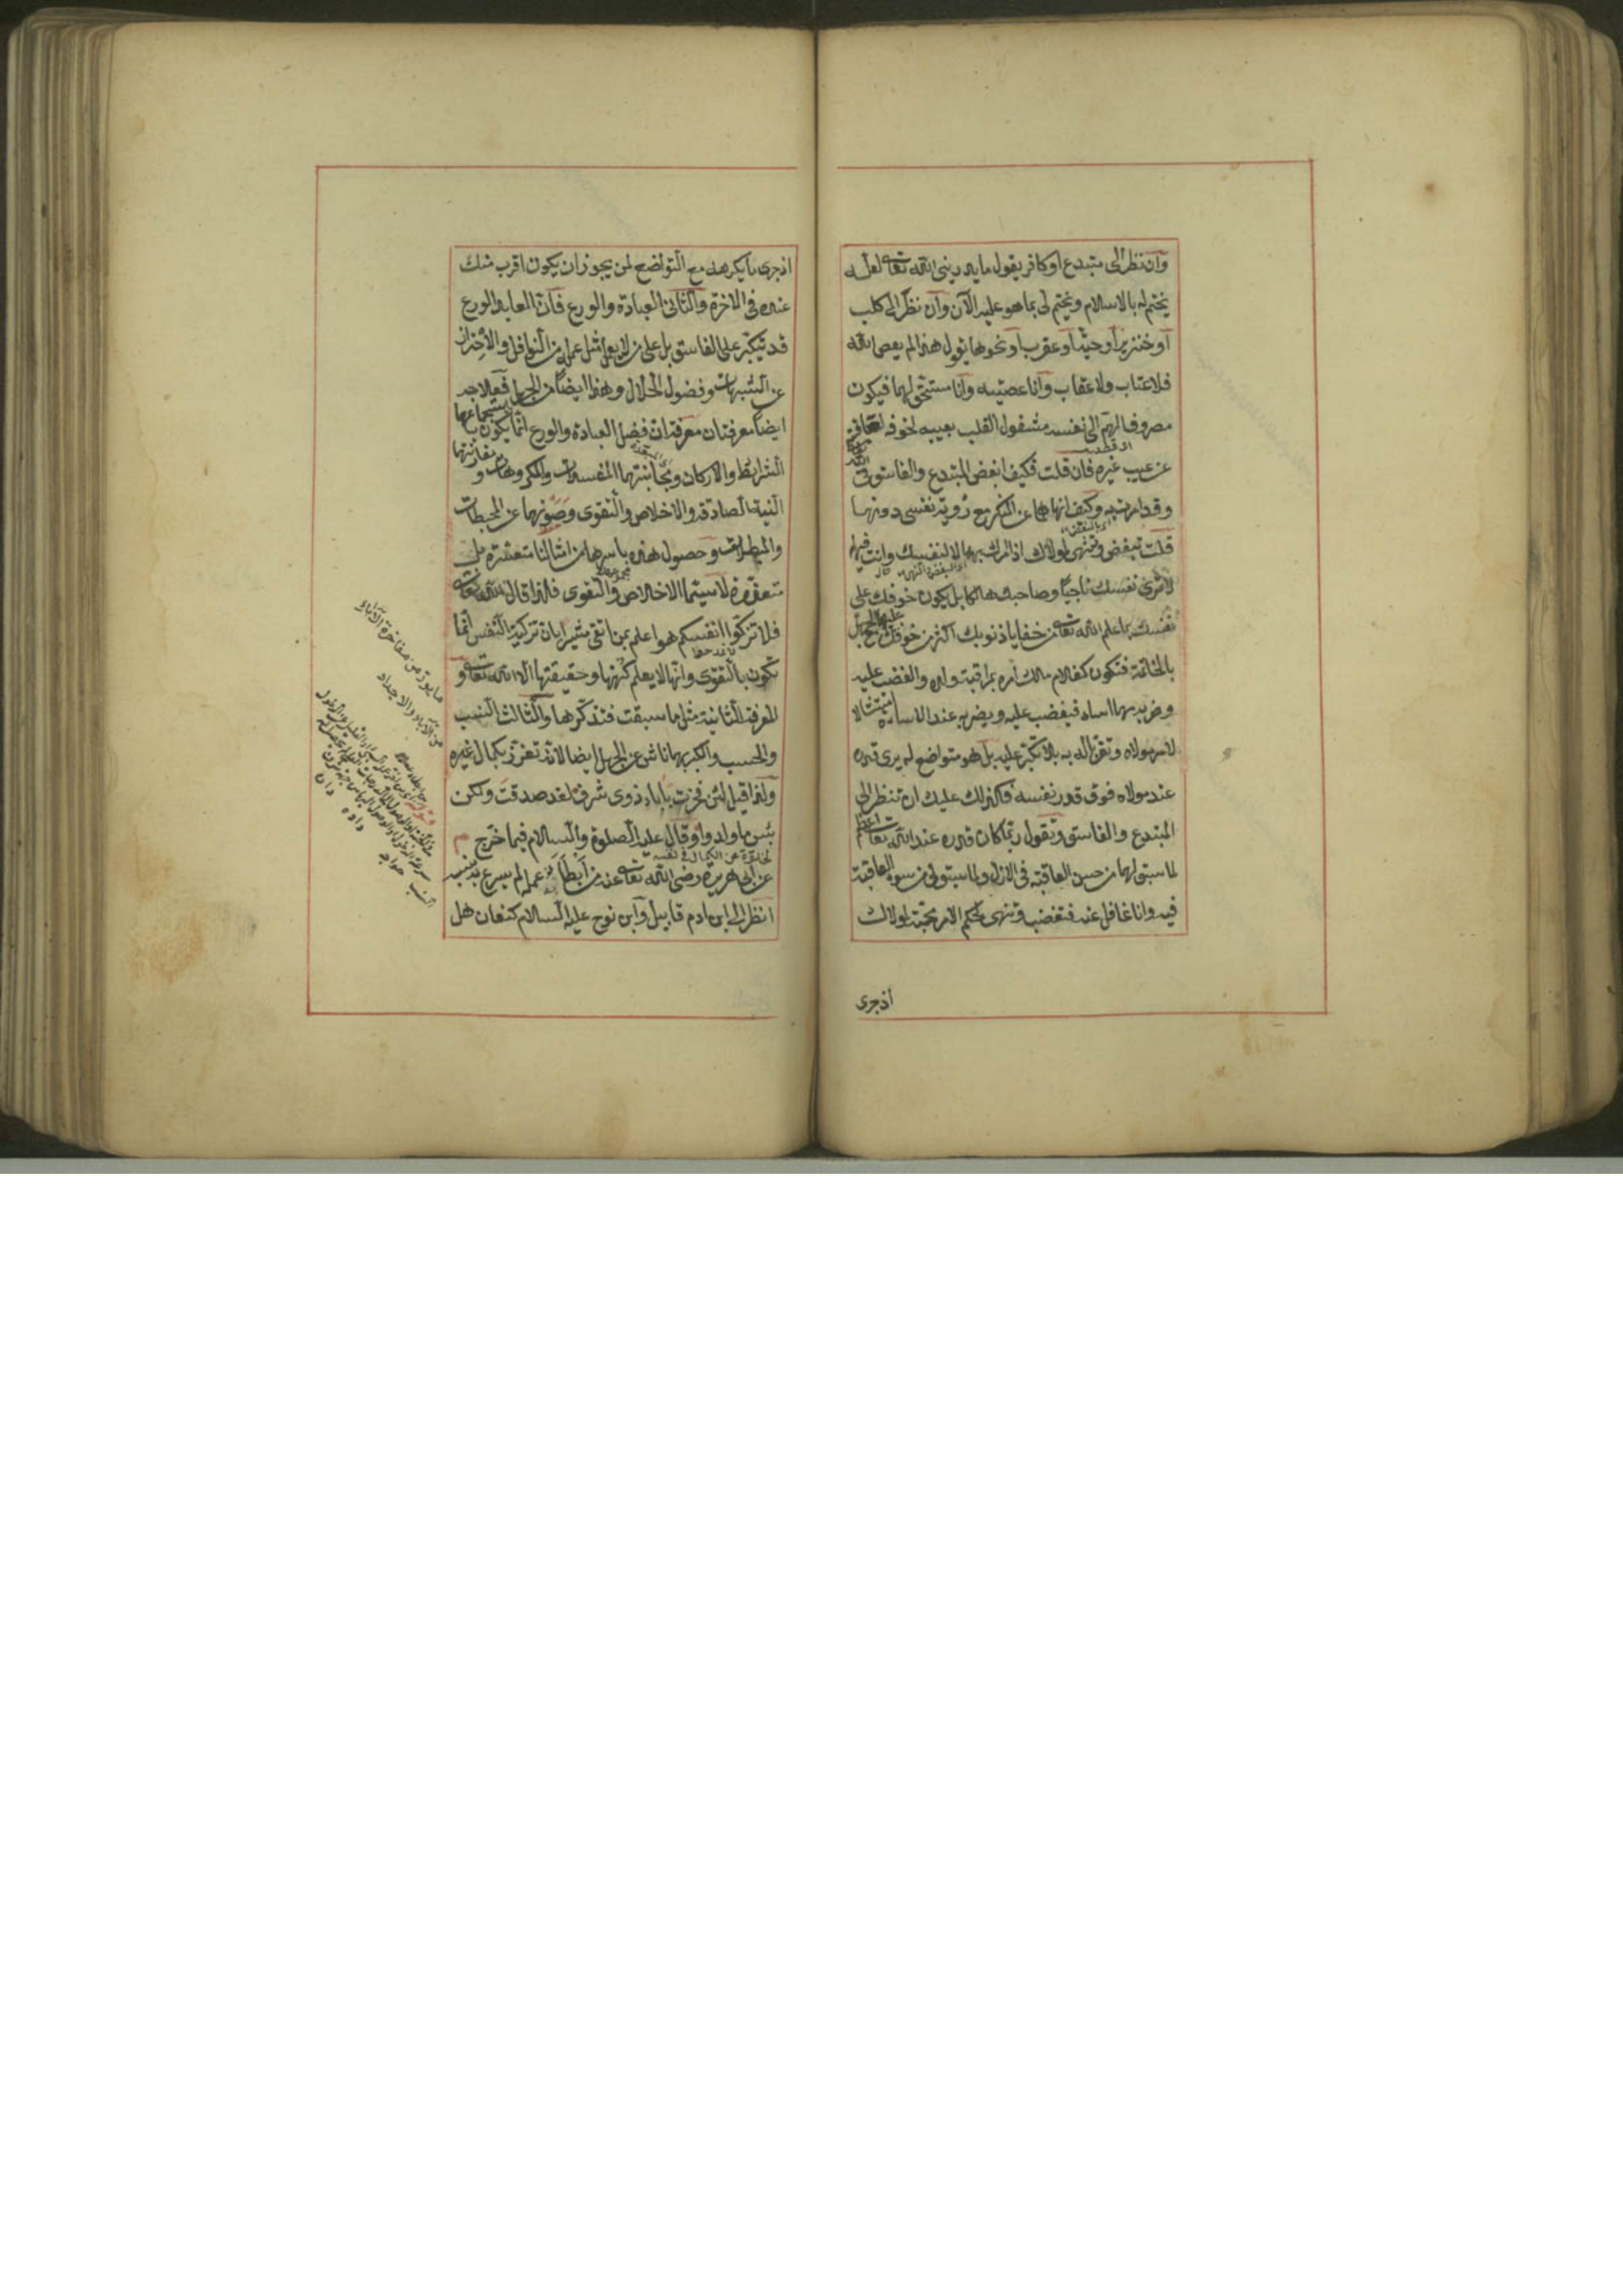 وان نظر الى مبتدع او كافر يقول ما يدرينى الله تعالى لعله
يختم له بالاسلام ويختم لى بما هو عليه الآن وان نظر الى كلب
او خنزير او حية او عقرب او نحوها يقول هذا لم يعص الله
فلا عتاب ولا عقاب وانا عصيته وانا مستحق لهما فيكون
مصروف الهم الى نفسه مشغول القلب بعيبه لخوفه
عن عيب غيره فان قلت فكيف ابغض المبتدع والفاسق فى
الله وقد امرت به وكيف انهاهما عن المنكر مع رؤية نفسى دونهما
قلت تبغض وتنهى لمولاك اذ امرك بهما لا لنفسك وانت فيهما
لا ترى نفسك ناجيا وصاحبك هالكا بل يكون خوفك على
نفسك بما علم الله تعالى من خفايا ذنوبك اكثر من خوفك عليهما مع الجهل
بالخاتمة فتكون كغلام مالك امره بمراقبة ولده والغضب عليه
وضربه مهما اساء فيغضب عليه ويضربه عند الاساءة امتثالا
لامر مولاه وتقربا له به بلا تكبر عليه بل هو متواضع له يرى قدره
عند مولاه فوق قدر نفسه فكذلك عليك ان تنظر الى
المبتدع والفاسق وتقول ربما كان قدره عند الله تعالى اعظم
لما سبق لهما من حسن العاقبة فى الازل ولما سبق لى من سوء العاقبة
فيه وانا غافل عنه فتغضب وتنهى لحكم الامر محبة لمولاك
اذ جرى
اذ جرى ما يكرهه مع التواضع لمن يجوز ان يكون اقرب منك
عنده فى الآخرة والثانى العبادة والورع فان العابد الورع
قد يتكبر على الفاسق بل على من لا يعمل مثل عمله من النوافل والاحتراز
عن الشبهات وفضول الحلال وهذا ايضا من الجهل فعلاجه
ايضا معرفتان معرفة ان فضل العبادة والورع انما يكون باستجماعها
الشرائط والاركان ومجانبتها المفسدات والمكروهات ومقارنتها
النية الصادقة والاخلاص والتقوى وصونها عن المحبطات
والمبطلات وحصول هذه باسرها من امثالنا متعسرة بل
متعذرة لا سيما الاخلاص والتقوى فلذا قال الله تعالى
فلا تزكوا انفسكم هو اعلم بمن اتقى مشيرا بان تزكية النفس انما
تكون بالتقوى وانها لا يعلم كنهها وحقيقتها الا الله تعالى و
المعرفة الثانية مثل ما سبقت فتذكرها والثالث النسب
والحسب والكبر بهما ناش عن الجهل ايضا لانه تعزز بكمال غيره
ولذا قيل لئن فخرت بآباء ذوى شرف لقد صدقت ولكن
بئس ما ولدوا وقال عليه الصلوة والسلام فيما خرج م
عن ابى هريرة رضى الله تعالى عنه من ابطأ به عمله لم يسرع به نسبه
انظر الى ابن ادم قابيل وابن نوح عليه السلام كنعان هل
ما يورث من مفاخرة الآباء
من الآباء والاجداد